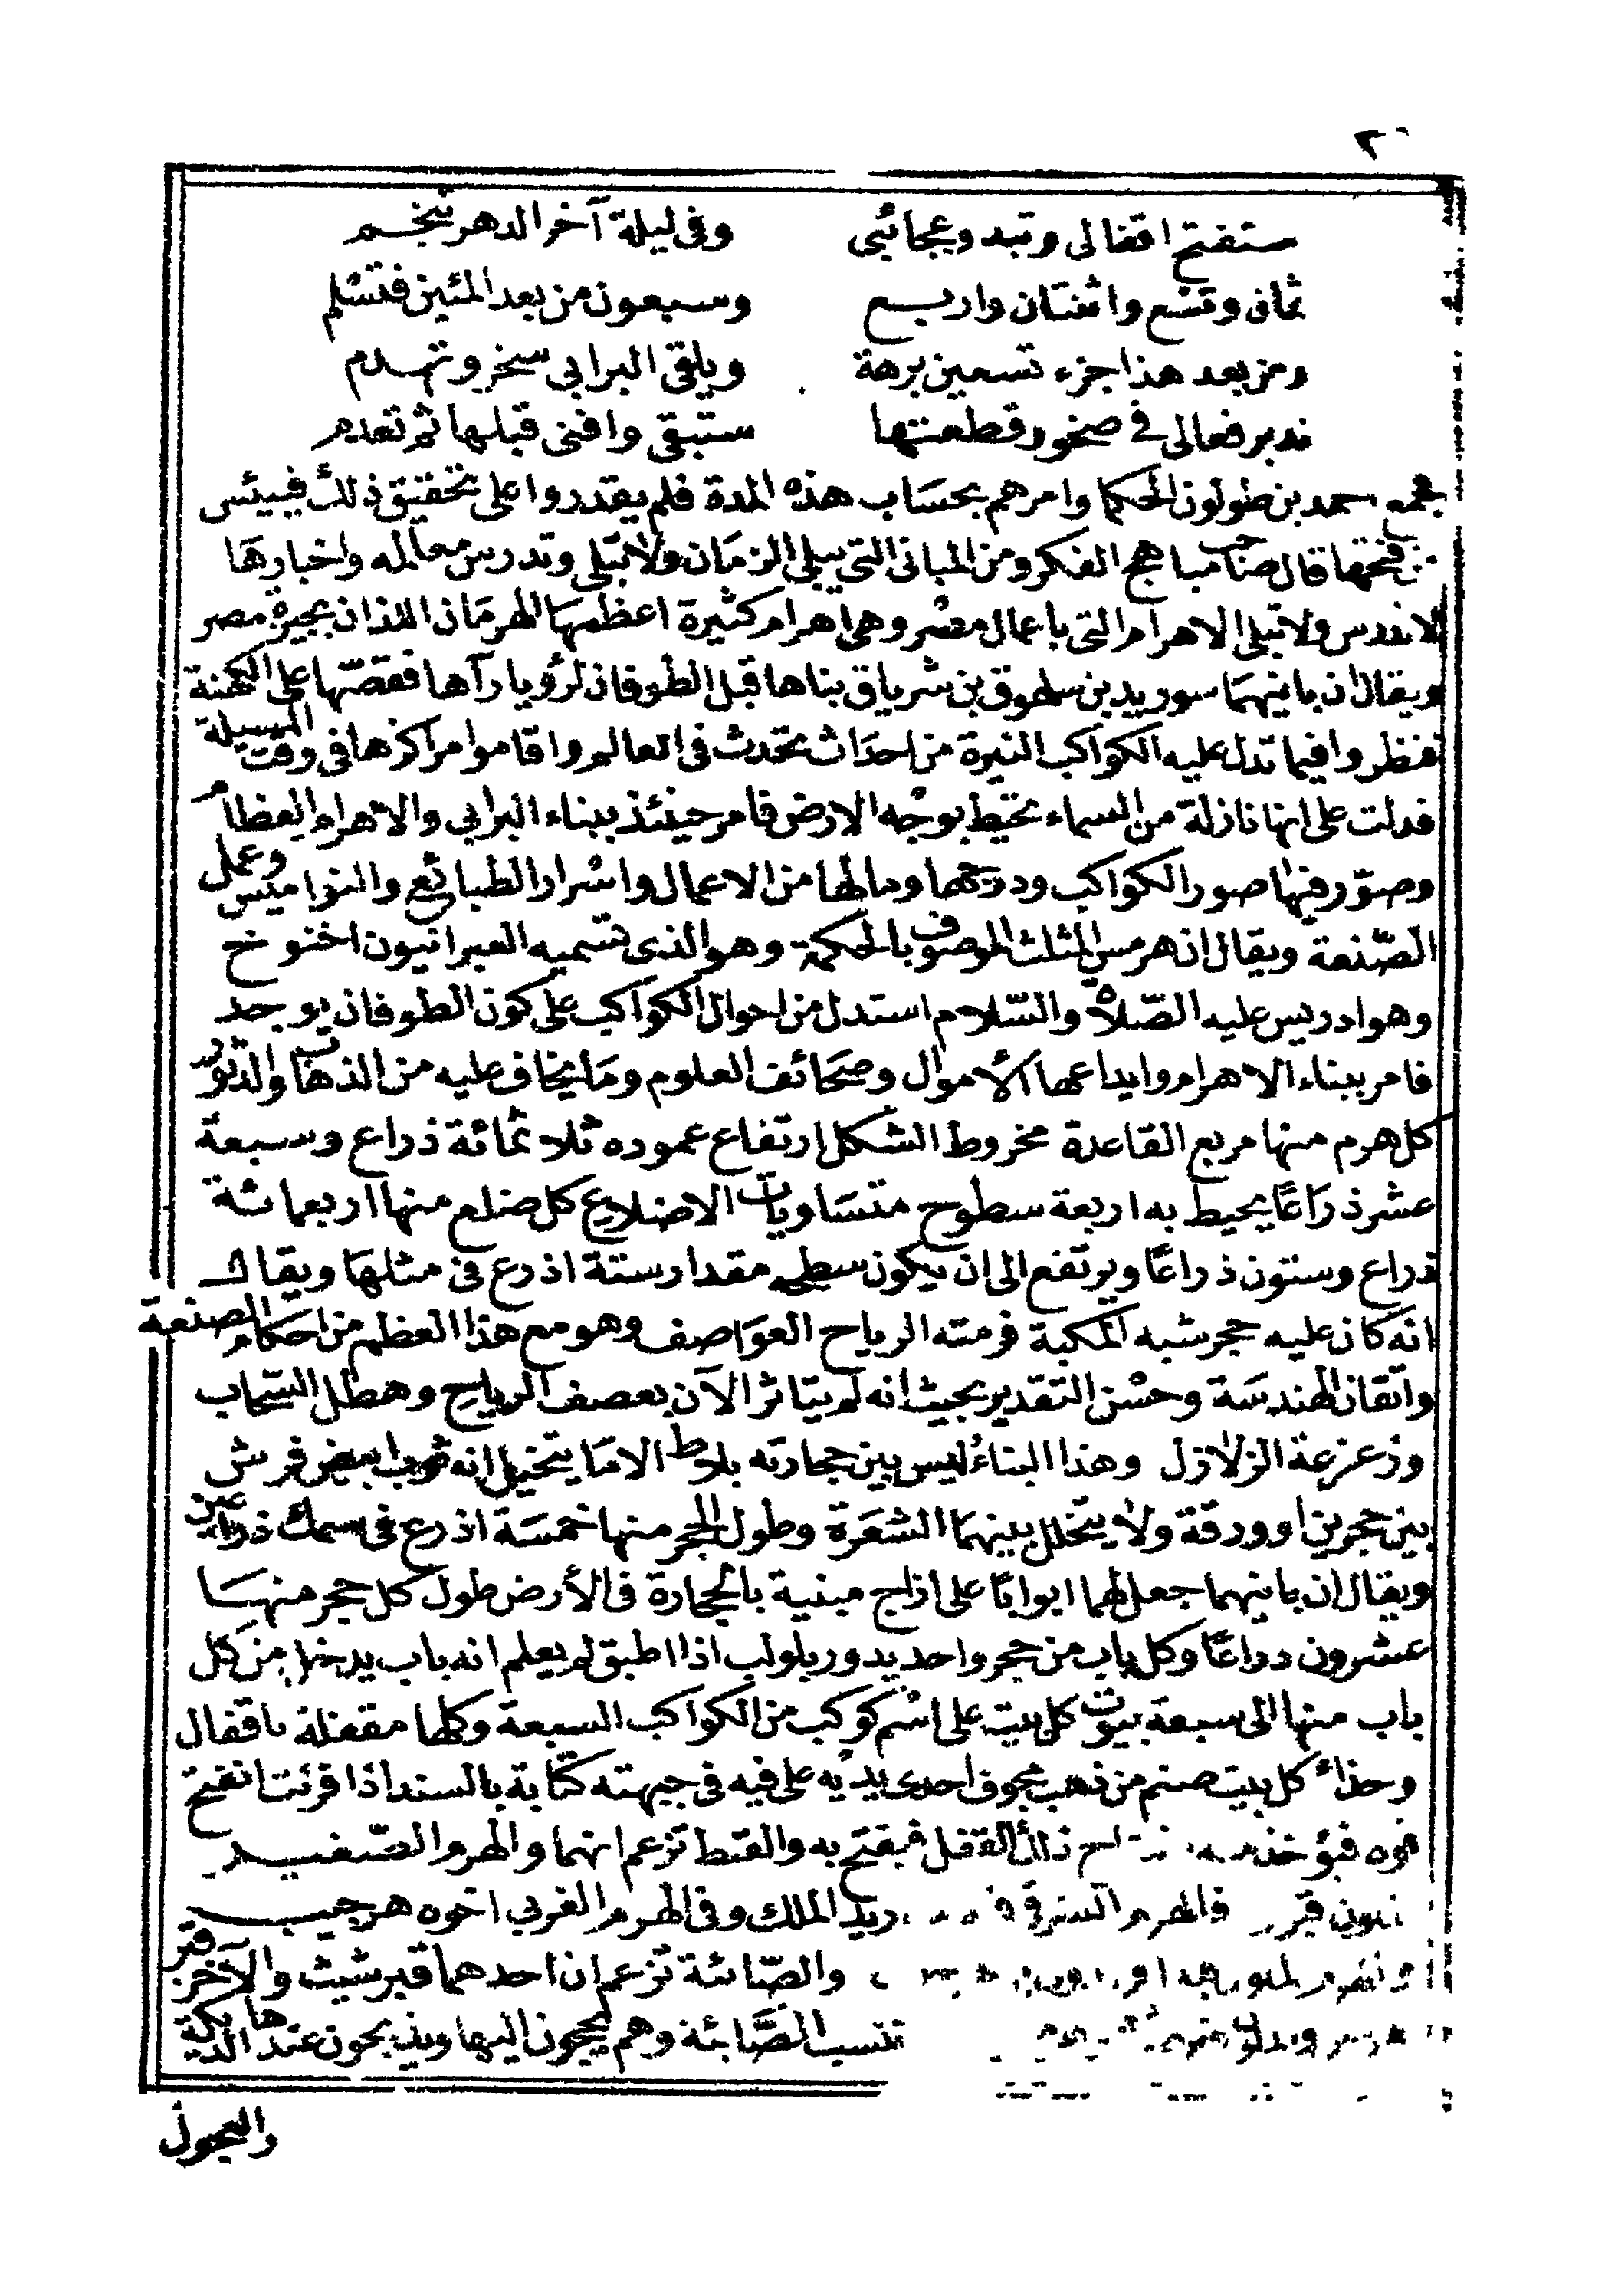 ستفتح اقفالى وتبدو عجائبى وفى ليلة آخر الدهر تنجم
ثمان وتسع واثنتان واربع وسبعون من بعد المئين فتسلم
ومن بعد هذا جزء تسعين برهة ويلقى البرابى سخر وتهدم
تدبر فعالى فى صخور قطعتها ستبقى وافنى قبلها ثم تعدم
فجمع احمد بن طولون الحكما وامرهم بحساب هذه المدة فلم يقدروا على تحقيق ذلك فيئس
من فتحها قال صاحب مباهج الفكر ومن المبانى التى يبلى الزمان ولا تبلى وتدرس معالمه واخبارها
لا تندرس ولا تبلى الاهرام التى باعمال مصر وهى اهرام كثيرة اعظمها الهرمان اللذان بجيزة مصر
ويقال ان بانيهما سوريد بن سلهوق بن شرياق بناها قبل الطوفان لرؤيا رآها فقصّها على الكهنة
فنظروا فيما تدل عليه الكواكب النيرة من احداث تحدث فى العالم واقاموا مراكزها فى وقت المسيلة
فدلت على انها نازلة من السماء تحيط بوجه الارض فامر حينئذ ببناء البرابى والاهرام العظام
وصوّر فيها صور الكواكب ودرجها ومالها من الاعمال واسرار الطبائع والنواميس وعمل
الصّنعة ويقال ان هرمس المثلث الموصوف بالحكمة وهو الذى تسميه العبرانيون اخنوخ
وهو ادريس عليه الصّلاة والسّلام استدل من احوال الكواكب على كون الطوفان يوجد
فامر ببناء الاهرام وايداعها الأموال وصحائف العلوم وما يخاف عليه من الذهاب والدثور
كل هرم منها مربع القاعدة مخروط الشكل ارتفاع عموده ثلاثمائة ذراع وسبعة
عشر ذراعًا يحيط به اربعة سطوح متساويات الاضلاع كل ضلع منها اربعمائة
ذراع وستون ذراعًا ويرتفع الى ان يكون سطحه مقدار ستة اذرع فى مثلها ويقال
انه كان عليه حجر شبه المكبة فرمته الرياح العواصف وهو مع هذا العظم من احكام الصنعة
واتقان الهندسة وحسن التقدير بحيث انه لم يتاثر الآن بعصف الرياح وهطل السّحاب
وزعزعة الزلازل وهذا البناء ليس بين حجارته بلاط الا ما يتخيل انه ثوب ابيض فرش
بين حجرين او ورقة ولا يتخلل بينهما الشعرة وطول الحجر منها خمسة اذرع فى سمك ذراعين
ويقال ان بانيهما جعل لهما ابوابًا على ازاج مبنية بالحجارة فى الأرض طول كل حجر منها
عشرون ذراعًا وكل باب من حجر واحد يدور بلولب اذا اطبق لم يعلم انه باب يدخل من كل
باب منها الى سبعة بيوت كل بيت على اسم كوكب من الكواكب السبعة وكلها مقفلة باقفال
وحذاء كل بيت صنم من ذهب مجوف احدى يديه على فيه فى جبهته كتابة بالسند اذا قرئت انفتح
فوه فيؤخذ منه ذلك القفل فيفتح به والقبط تزعم انهما والهرم الصّغير
قبور فالهرم الشرقى الملك وفى الهرم الغربى اخوه هرجيب
والصّائبة تزعم ان احدهما قبر شيث والآخر قبر
تنسب الصَّابئة وهم يحجون اليها ويذبحون عندها الديكة
والعجول